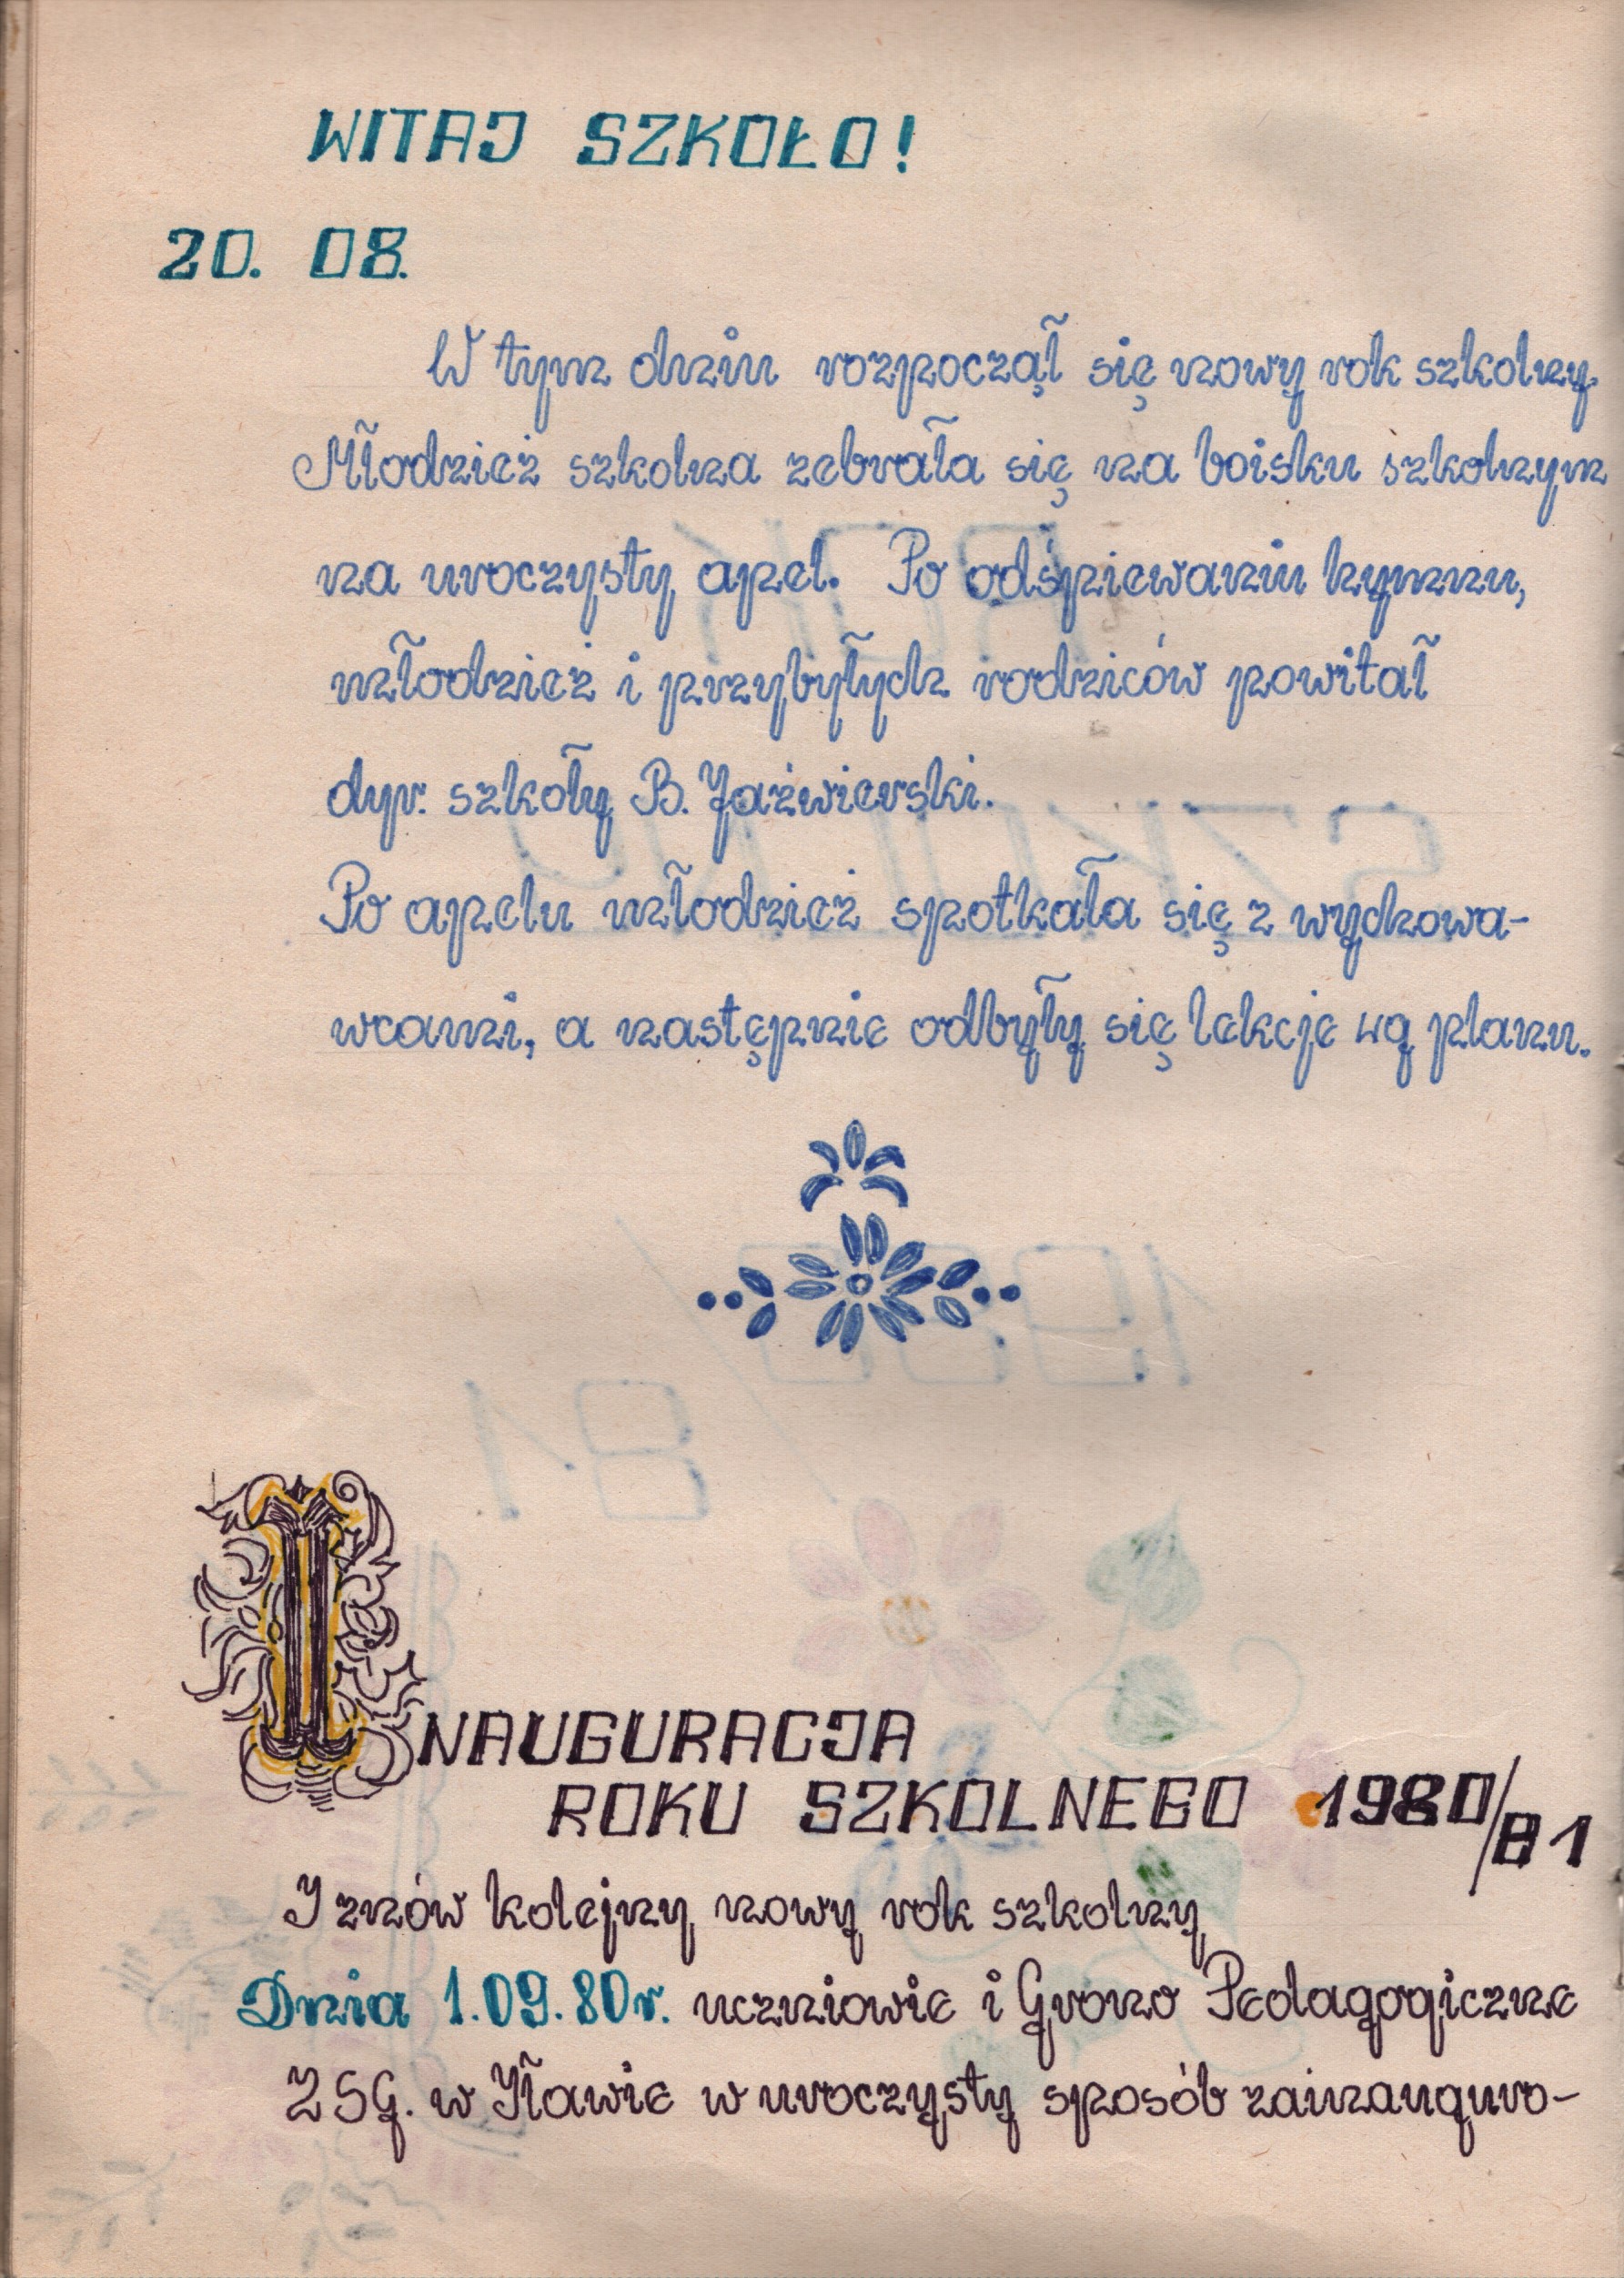 WITAJ SZKOŁO!
20. 08.
W tym dniu rozpoczął się nowy rok szkolny.
Młodzież szkolna zebrała się na boisku szkolnym
na uroczysty apel. Po odśpiewaniu hymnu,
młodzież i przybyłych rodziców powitał
dyr. szkoły B. Jaźwierski.
Po apelu młodzież spotkała się z wychowa-
wcami, a następnie odbyły się lekcje wg planu.
INAUGURACJA
ROKU SZKOLNEGO 1980/81
I znów kolejny nowy rok szkolny
Dnia 1.09.80r. uczniowie i Grono Pedagogiczne
ZSG. w Iławie w uroczysty sposób zainauguro-